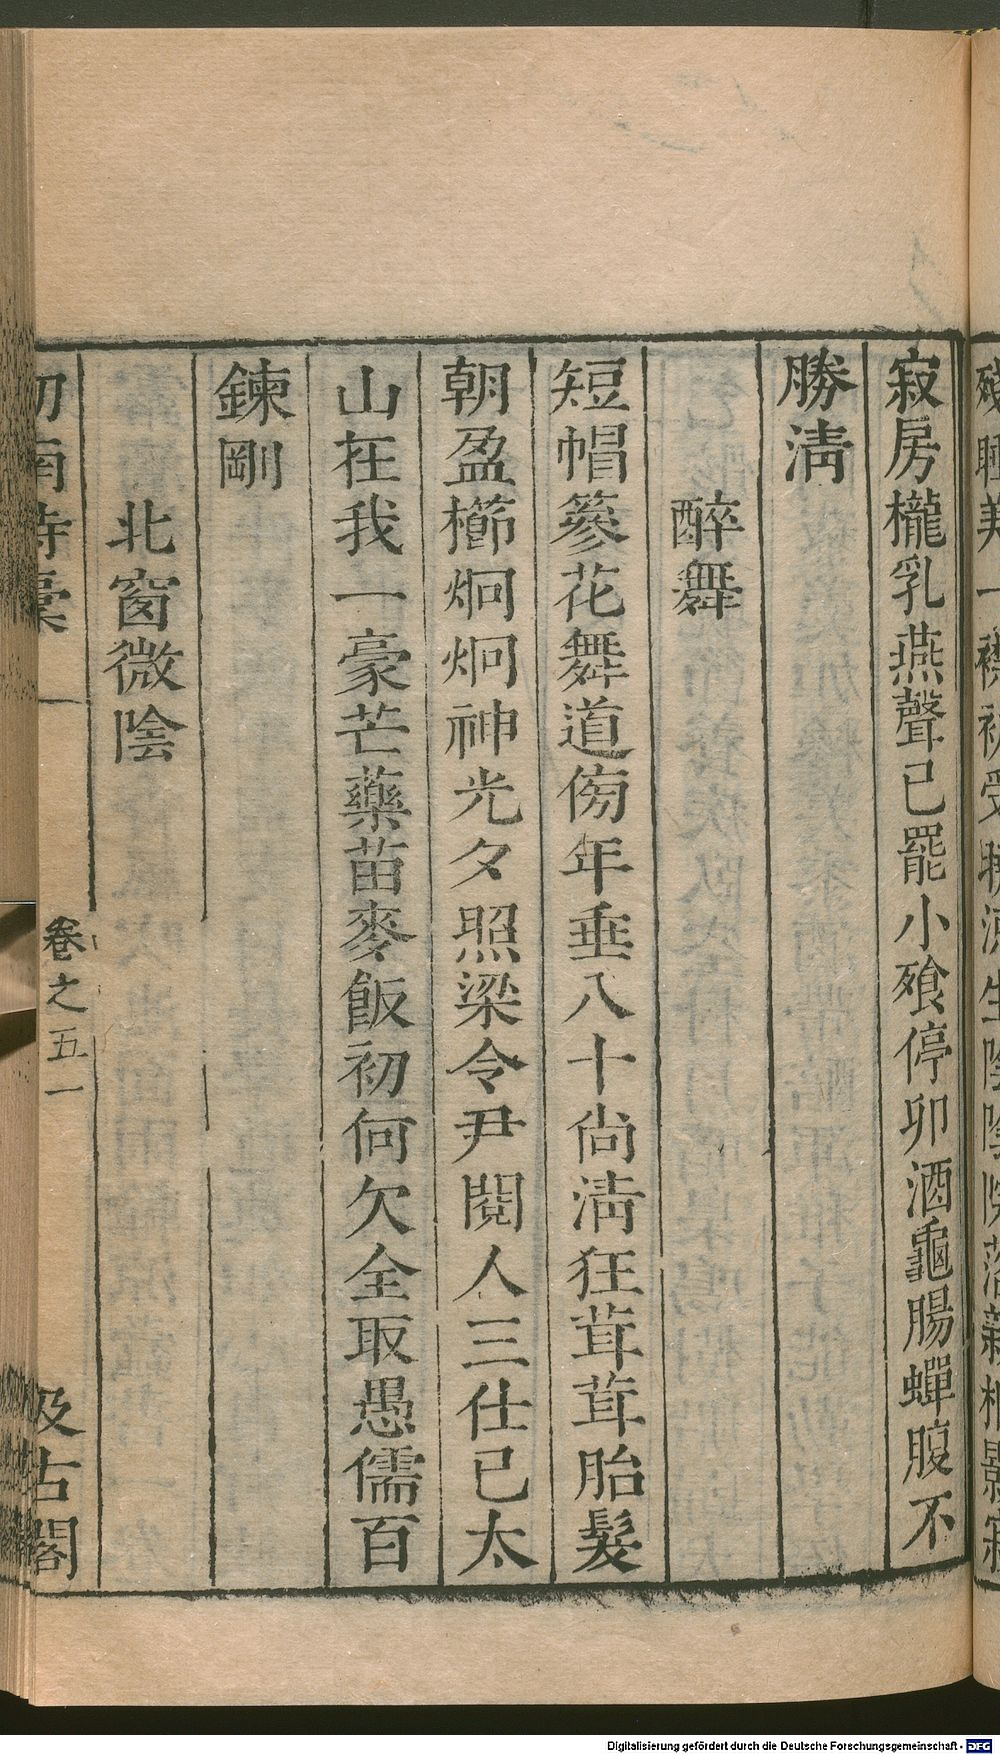 寂房櫳乳燕聲已罷小飱停卯酒龜腸蟬腹不
勝淸
醉舞
短帽篸花舞道傍年垂八十尚淸狂茸茸胎髮
朝盈櫛炯炯神光夕照梁令尹閱人三仕已太
山在我一豪芒藥苗麥飯初何欠全取愚儒百
鍊剛
北窗微陰
卷之五 一
汲古閣
Digitalisierung gefördert durch die Deutsche Forschungsgemeinschaft - DFG